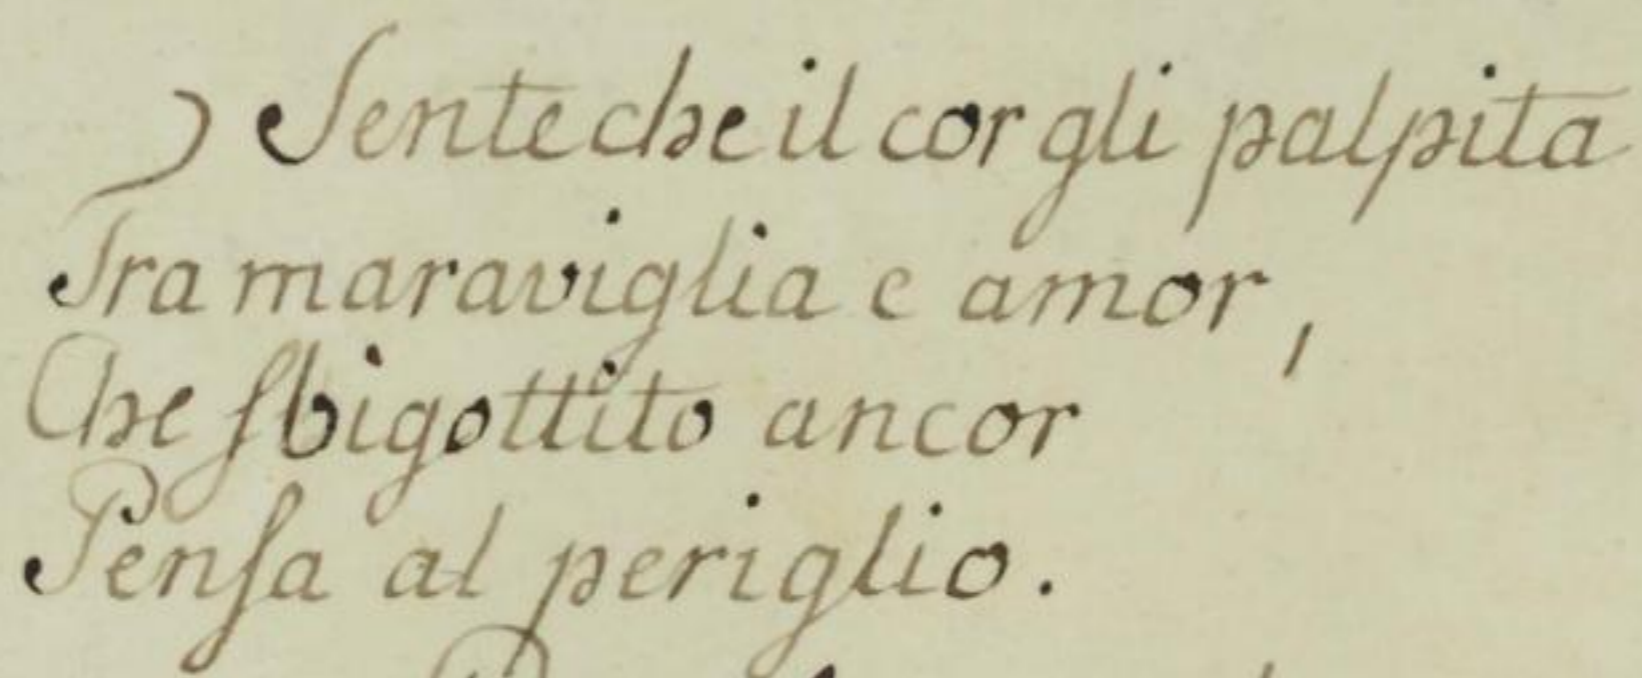 Sente che il cor gli palpita
Tra maraviglia e amor,
Che sbigottito ancor
Pensa al periglio.